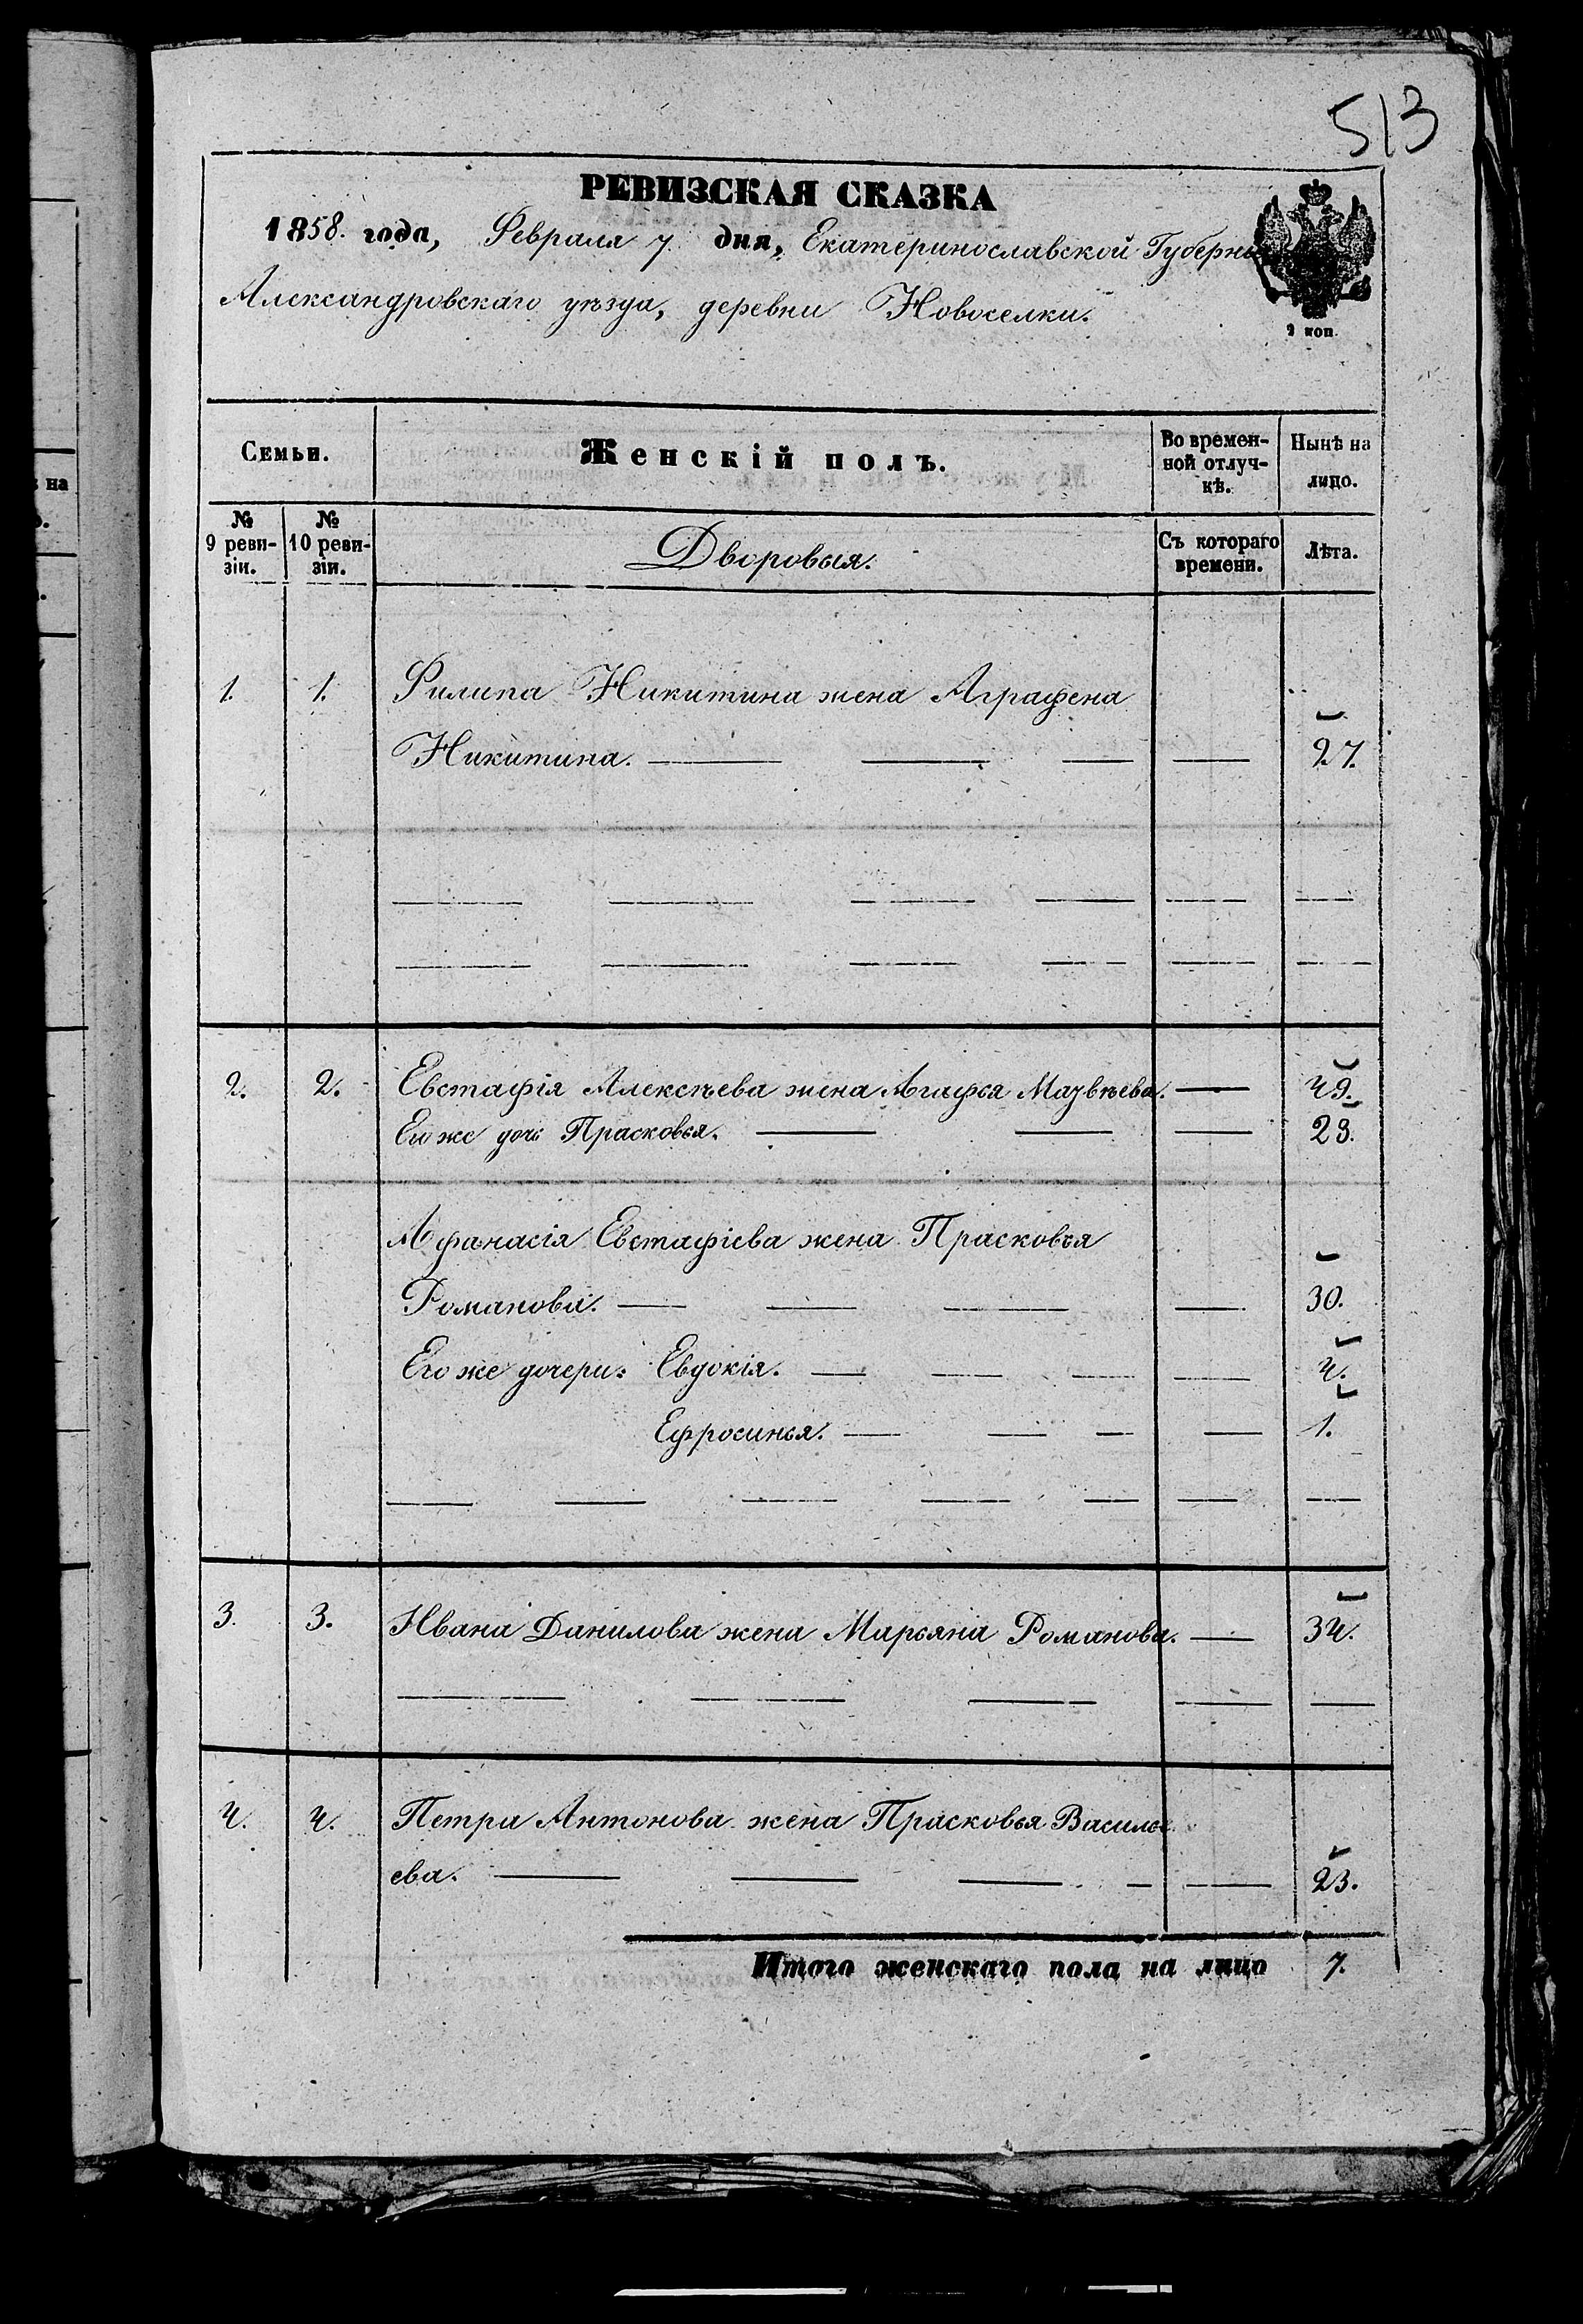 513
РЕВИЗСКАЯ СКАЗКА
1858. года, Февраля 7 дня, Екатеринославской Губерніи
Александровскаго уѣзда, деревни Новоселки.
2 коп.
Семьи. Женскій полъ. Во времен-
ной отлуч-
кѣ. Нынѣ на
лицо.
№
9 реви-
зіи. №
10 реви-
зіи. Дворовыя. Съ котораго
времени. Лѣта.
1. 1. Филипа Никитина жена Аграфена
Никитина. 27.
2. 2. Евстафія Алексѣева жена Агафья Матвѣева. 49.
Его же дочь Прасковья. 23.
Афанасія Евстафіева жена Прасковья
Романова. 30.
Его же дочери: Евдокія. 4.
Ефросинья. 1.
3. 3. Ивана Данилова жена Марьяна Романова. 34.
4. 4. Петра Антонова жена Прасковья Василь
ева. 23.
Итого женскаго пола на лицо 7.
на